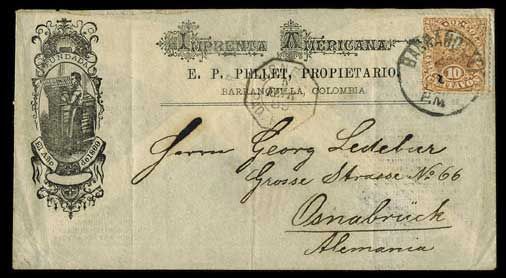 FUNDADA
EL AÑO
IMPRENTA AMERICANA.
E. P. PELLET, PROPIETARIO.
BARRANQUILLA, COLOMBIA.
10
P.M.
Herrn Georg Ledebur
Grosse Strasse No 66
Osnabrück
Alemania